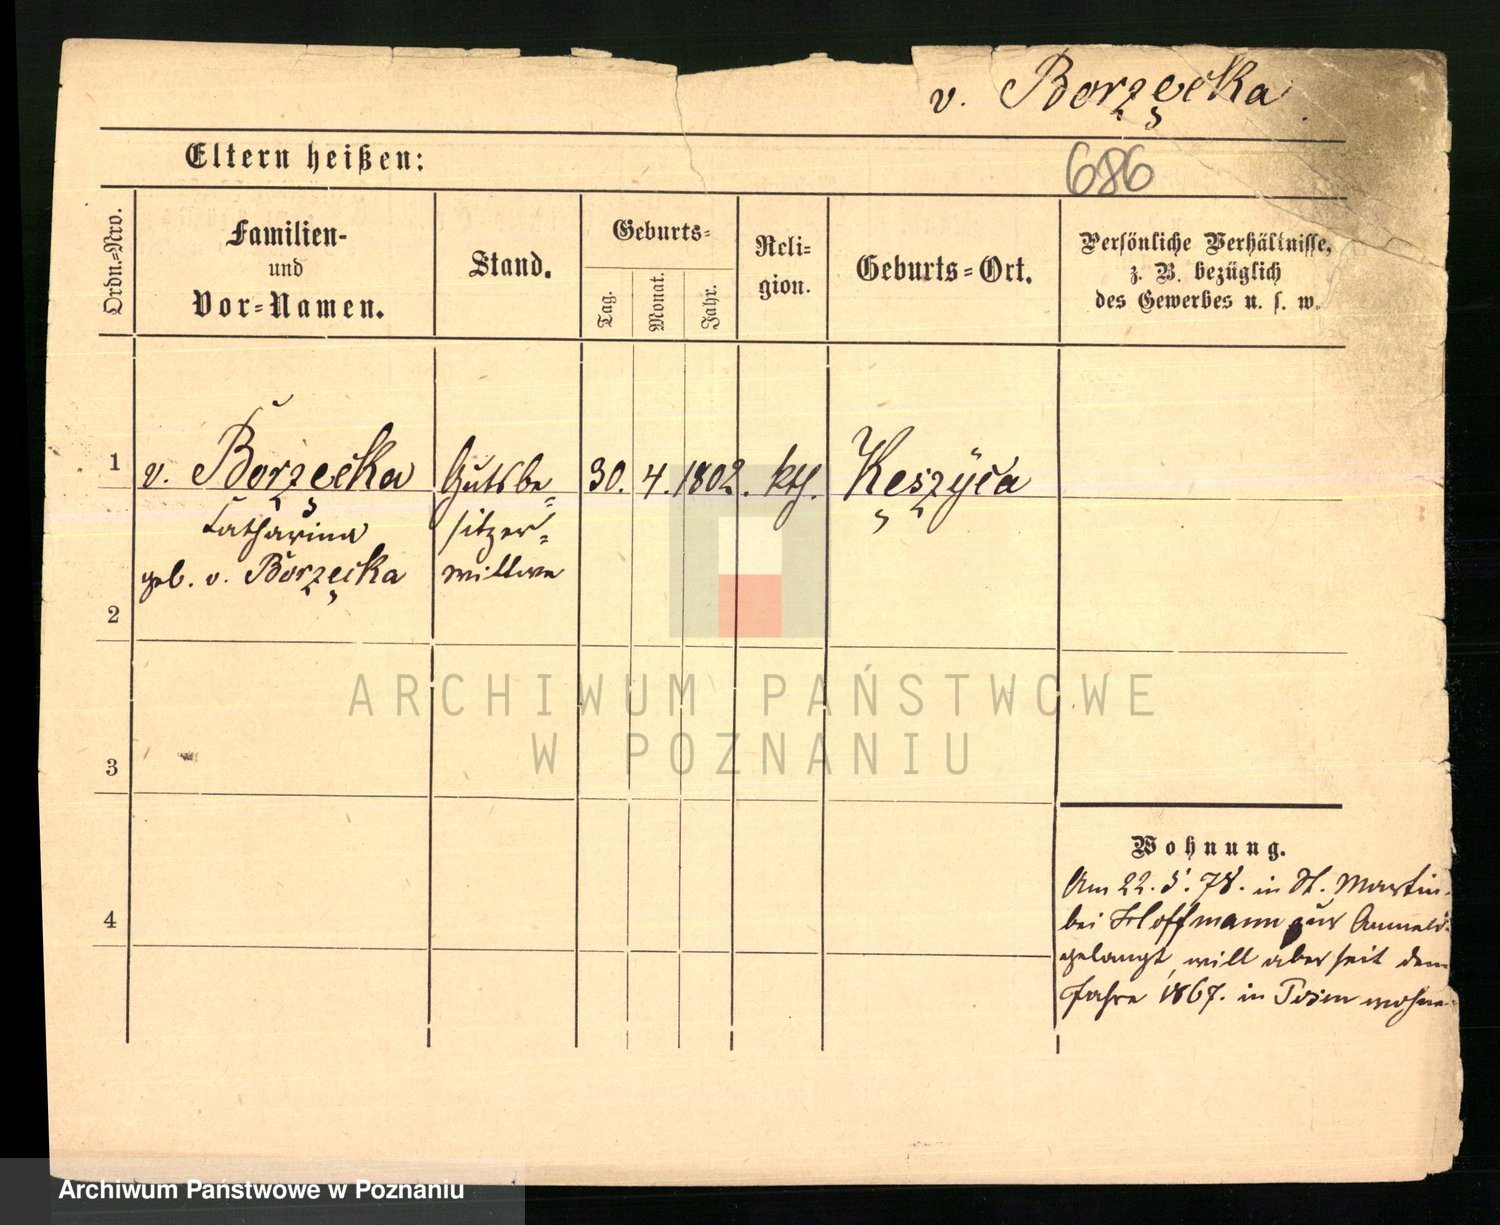 v. Borzęcka
Eltern heißen:
686
Ordn.-Nro.
Familien-
und
Vor-Namen.
Stand.
Geburts-
Tag.
Monat.
Jahr.
Reli-
gion.
Geburts-Ort.
Persönliche Verhältnisse,
z. B. bezüglich
des Gewerbes u. s. w.
1
v. Borzęcka
Catharina
geb. v. Borzęcka
Gutsbe-
sitzer-
wittwe
30.
4.
1802.
kth.
Keszyca
2
3
4
Wohnung.
Am 22. 5. 78. in St. Martin
bei Hoffmann zur Anmeld.
gelangt, will aber seit dem
Jahre 1867. in Posen wohne
ARCHIWUM PAŃSTWOWE
W POZNANIU
Archiwum Państwowe w Poznaniu